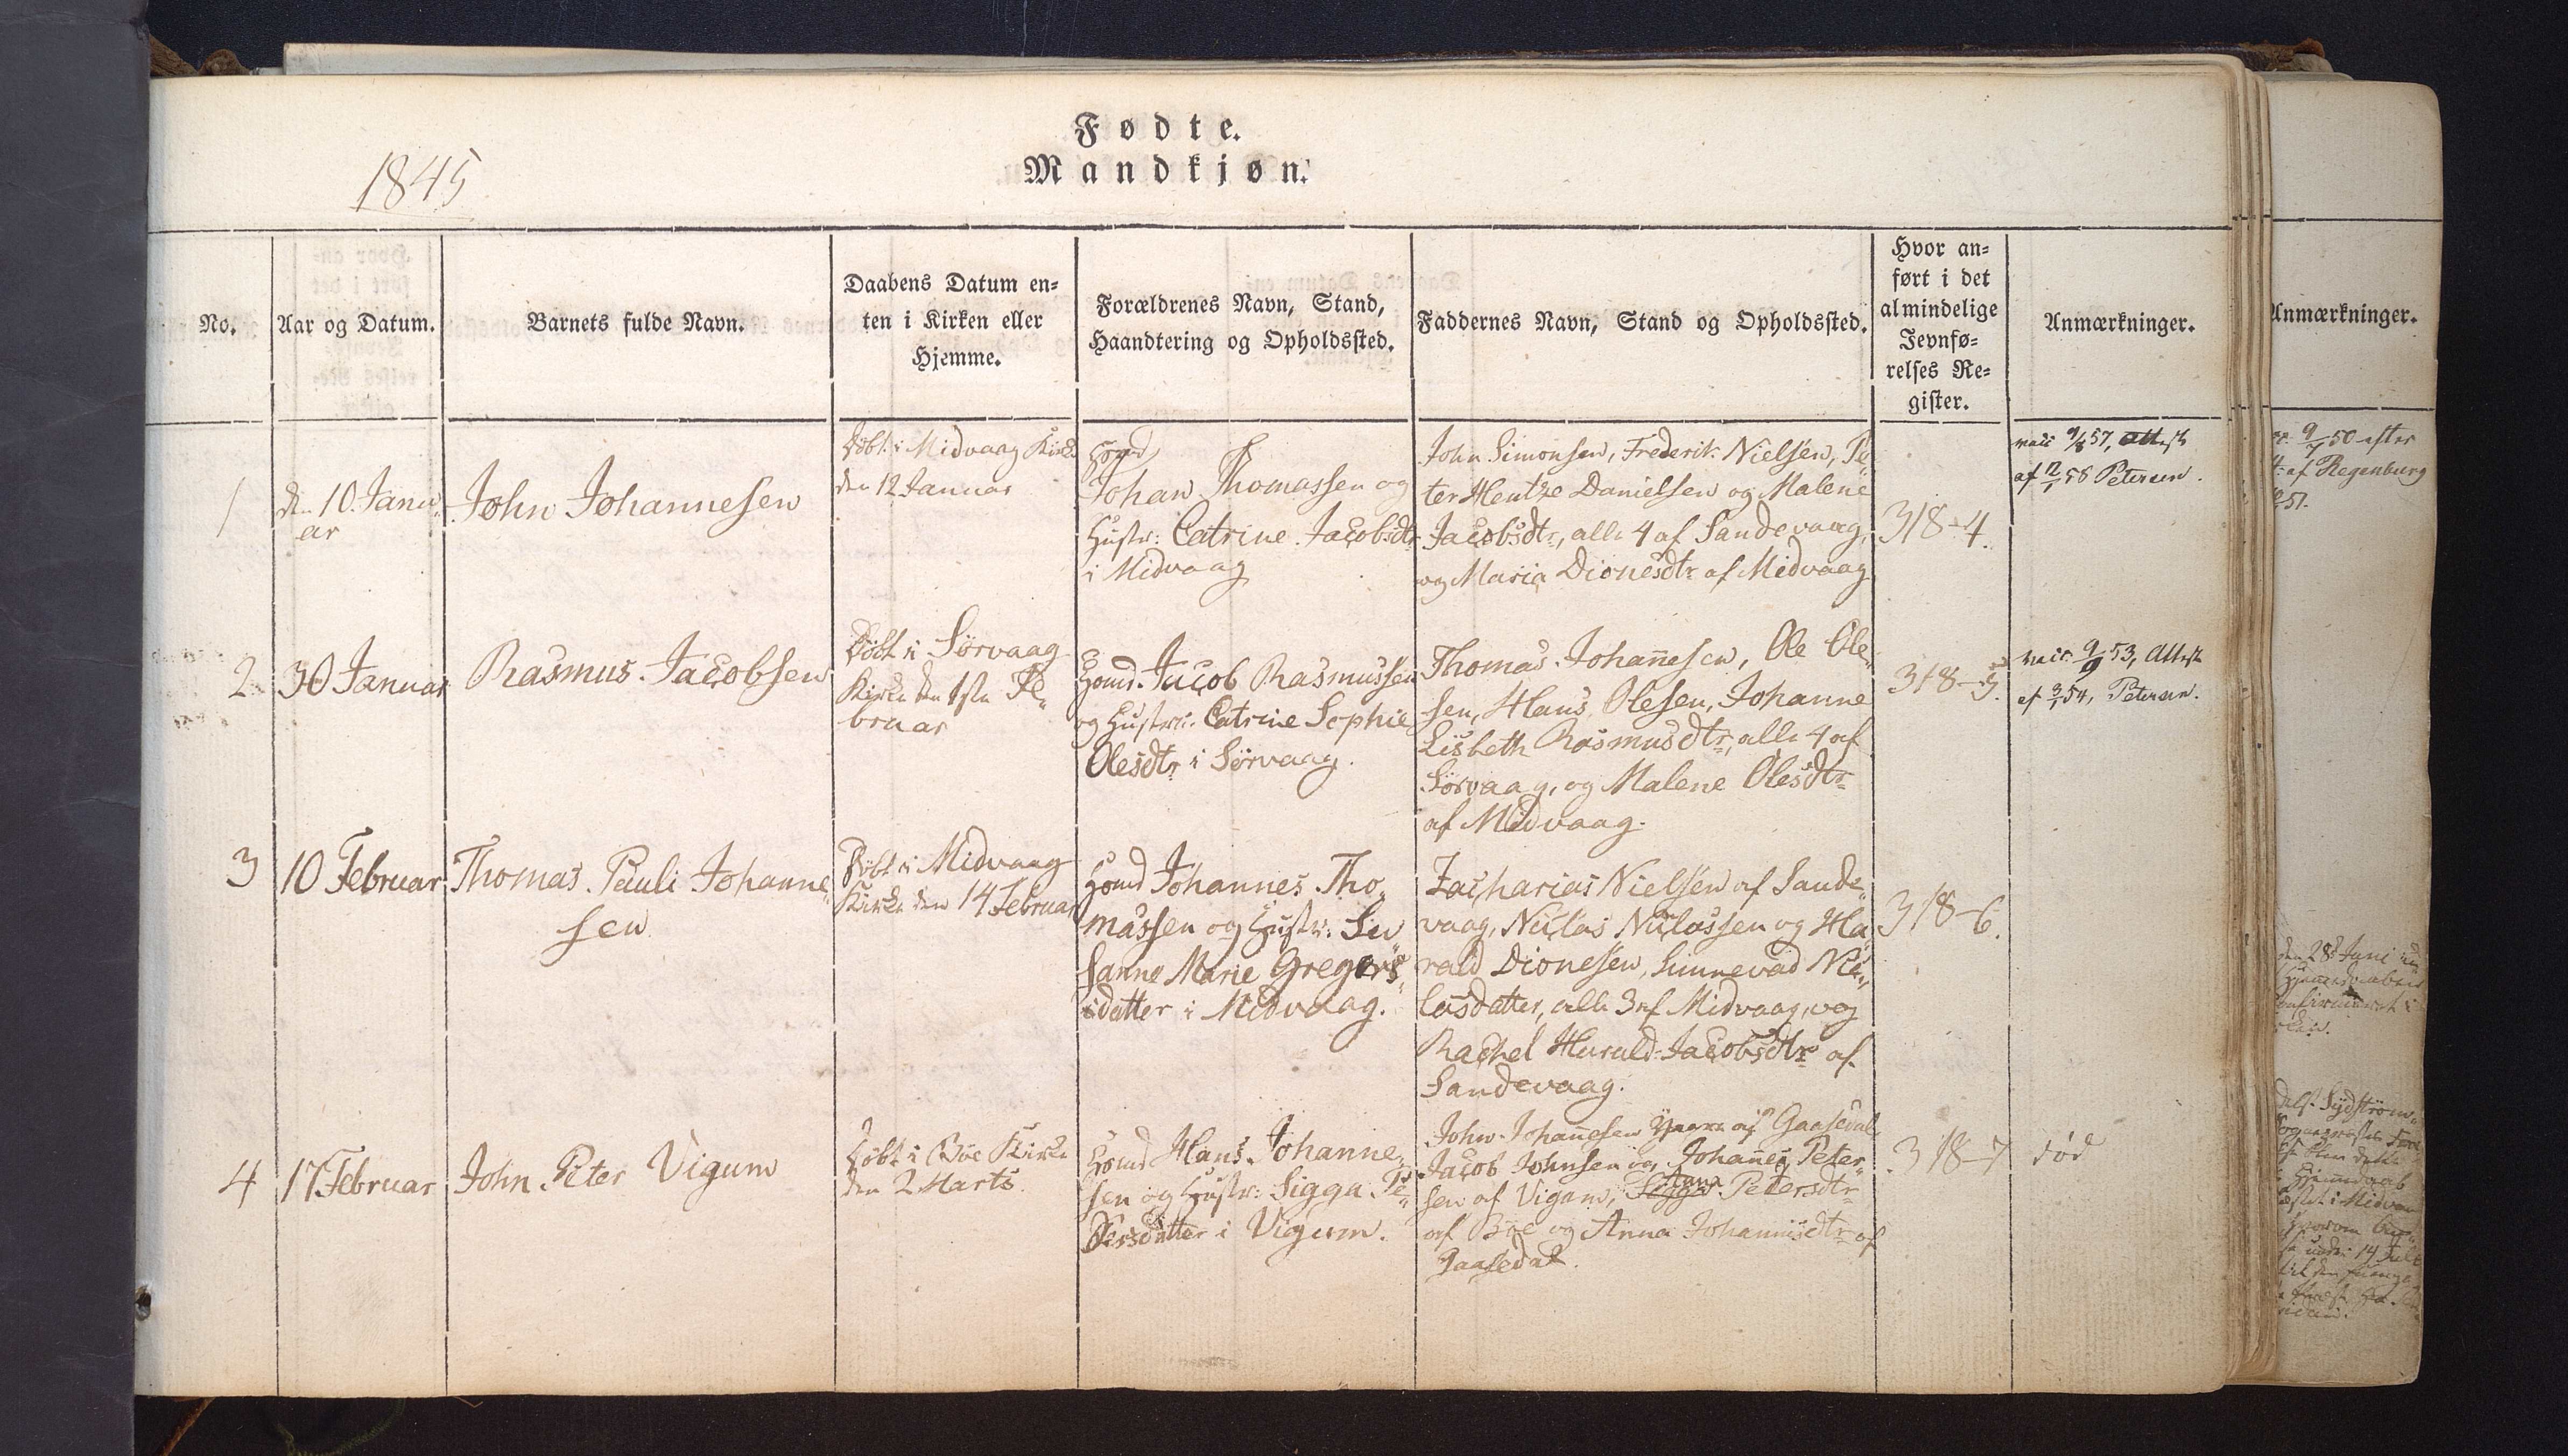 Fødte.
Mandkjøn.
1845
No.
Aar og Datum.
Barnets fulde Navn.
Daabens Datum en-
ten i Kirken eller
Hjemme.
Forældrenes Navn, Stand,
Haandtering og Opholdssted.
Faddernes Navn, Stand og Opholdssted.
Hvor an-
ført i det
almindelige
Jevnfø-
relses Re-
gister.
Anmærkninger.
Anmærkninger.
1
den 10. Janu-
ar
John Johannesen
Döbt i Midvaag Kirke
den 12 Januar
Johan Thomassen og
Hustr: Catrine Jacobsdtr
i Midvaag
John Simonsen, Frederik Nielsen, Pe-
ter Hentze Danielsen og Malene
Jacobsdtr, alle 4 af Sandevaag,
og Maria Dionesdtr af Midvaag
318-4.
vacc 9/8 57, Attest
af 12/1 58 Petersen.
2
30 Januar
Rasmus Jacobsen
Döbt i Sörvaag
Kirke den 1ste Fe-
bruar
Jacob Rasmussen
og Hustru: Catrine Sophie
Olesdtr i Sörvaag.
Thomas Johannesen, Ole Ole-
sen, Hans Olesen, Johanne
Lisbeth Rasmusdtr, alle 4 af
Sörvaag, og Malene Olesdtr
af Midvaag.
318-5.
vacc. 9/9 53, Attest
af 3/1 54, Petersen.
3
10 Februar
Thomas Pauli Johanne-
sen
Döbt i Midvaag
Kirke den 14 Februar
Johannes Tho-
massen og Hustr: Su-
sanne Marie Gregers-
datter i Midvaag.
Zacharias Nielsen af Sande-
vaag, Niclas Niclassen og Ha-
rald Dionesen, Sunnevad Nic-
lasdatter, alle 3 af Midvaag, og
Rachel Harald Jacobsdtr af
Sandevaag.
318-6.
4
17 Februar
John Peter Vigum
Döbt i Böe Kirke
den 2 Marts
Hans Johanne-
sen og Hustr: Sigga Pe-
tersdatter i Vigum.
John Johannesen af Gaasedal
Jacob Johnsen og Johannes Peter-
sen af Vigum, Petersdtr
af Böe og Anna Johannisdtr af
Gaasedal.
318-7
död
9/7 50 efter
af Regenburg
51.
den 28de Juni
14 Juli